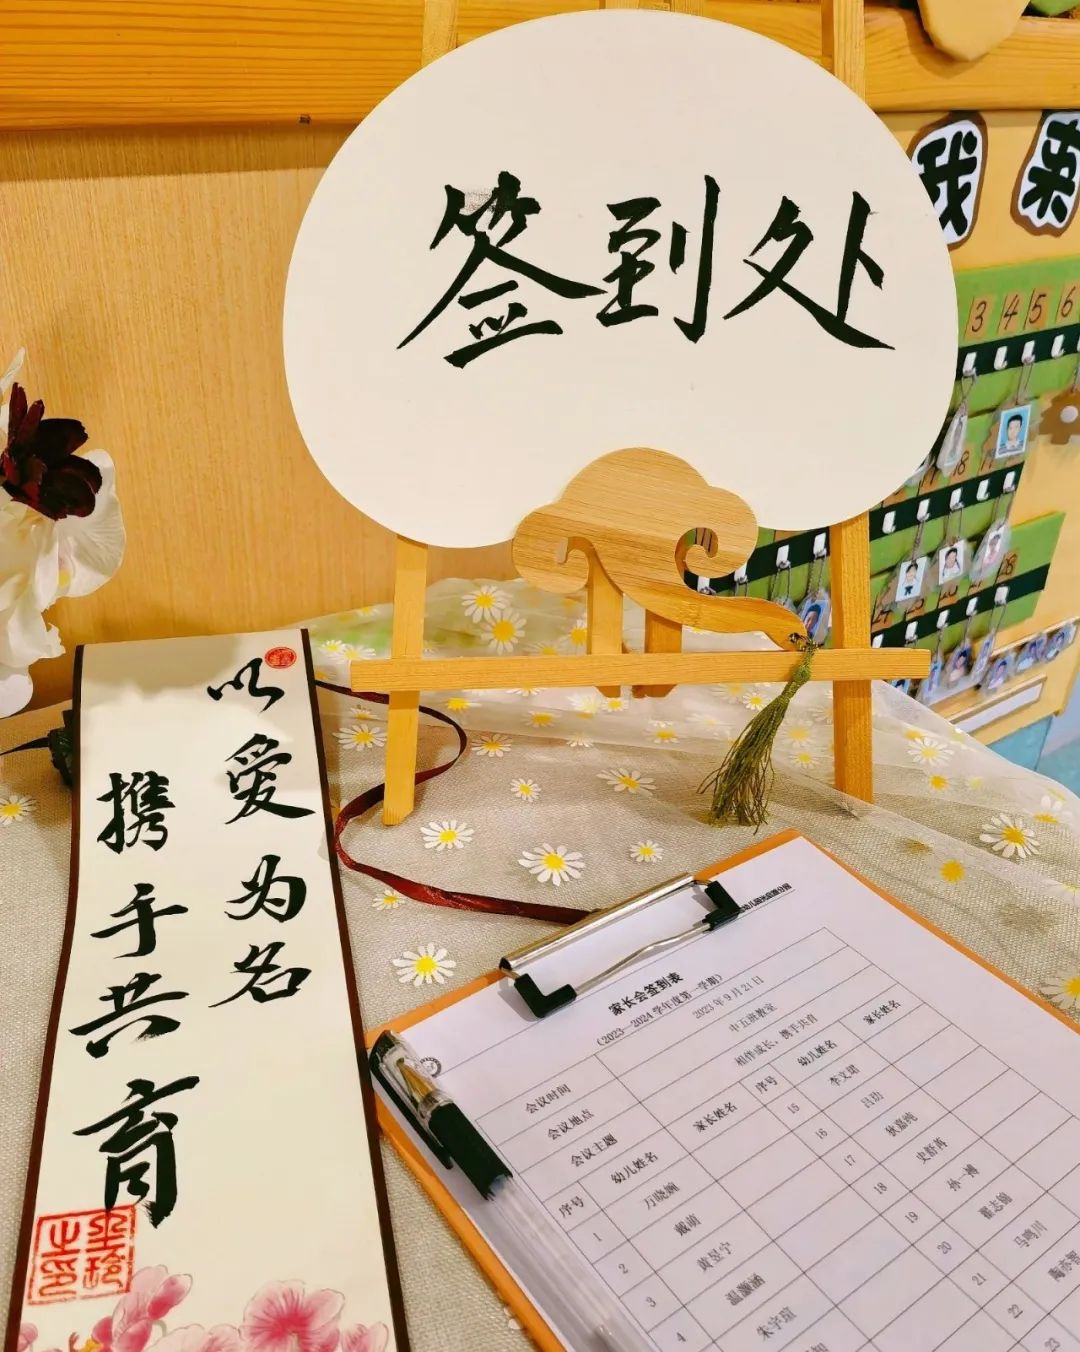 签到处
我来
3 4 5 6
以爱为名
携手共育
家长会签到表
（2023—2024学年度第一学期）
会议时间 2023年9月21日
会议地点 中五班教室
会议主题 相伴成长，携手共育
序号 幼儿姓名 家长姓名 序号 幼儿姓名 家长姓名
1 万晓婉 15 李文珺
2 戴萌 16 吕玏
3 黄昱宁 17 狄嘉纯
4 温灏涵 18 史舒苒
朱宇瑄 19 孙一搏
20 翟志锦
21 马鸣川
22
23